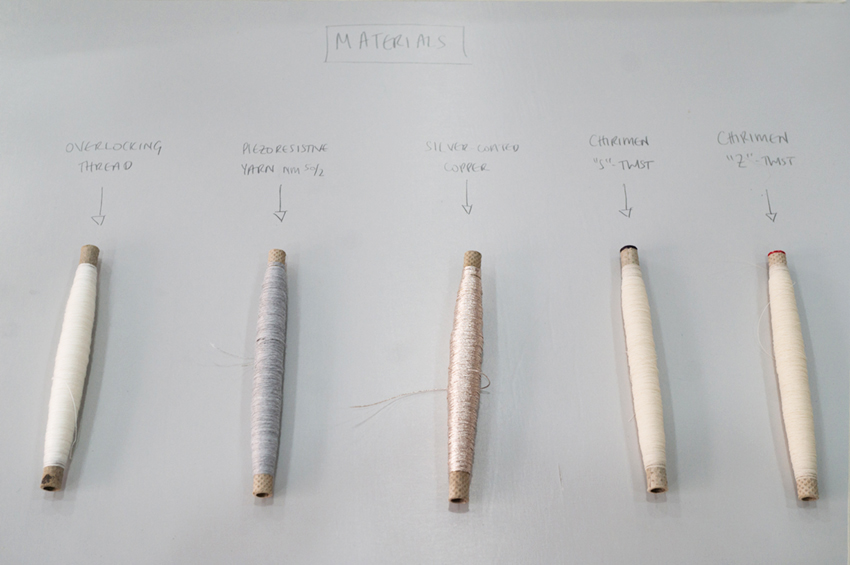 MATERIALS
OVERLOCKING
THREAD
PIEZORESISTIVE
YARN NM 50/2
SILVER-COATED
COPPER
CHIRIMEN
"S"-TWIST
CHIRIMEN
"Z"-TWIST